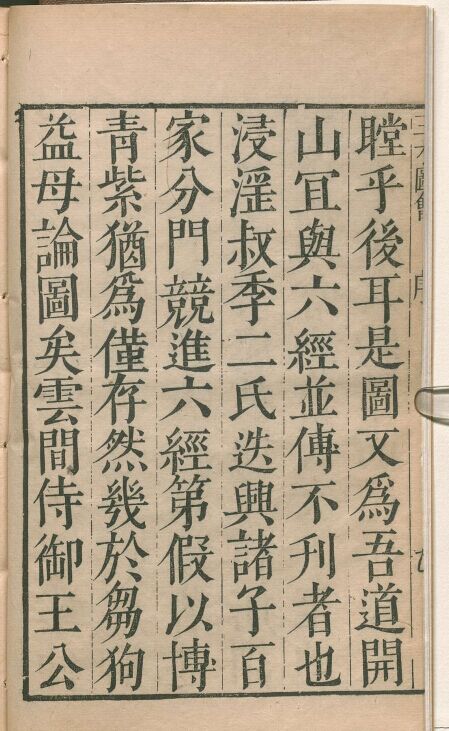 瞠乎後耳是圖又爲吾道開
山冝與六經並傳不刋者也
浸淫叔季二氏迭興諸子百
家分門競進六經第假以博
青紫猶爲僅存然幾於芻狗
益母論圖矣雲間侍御王公